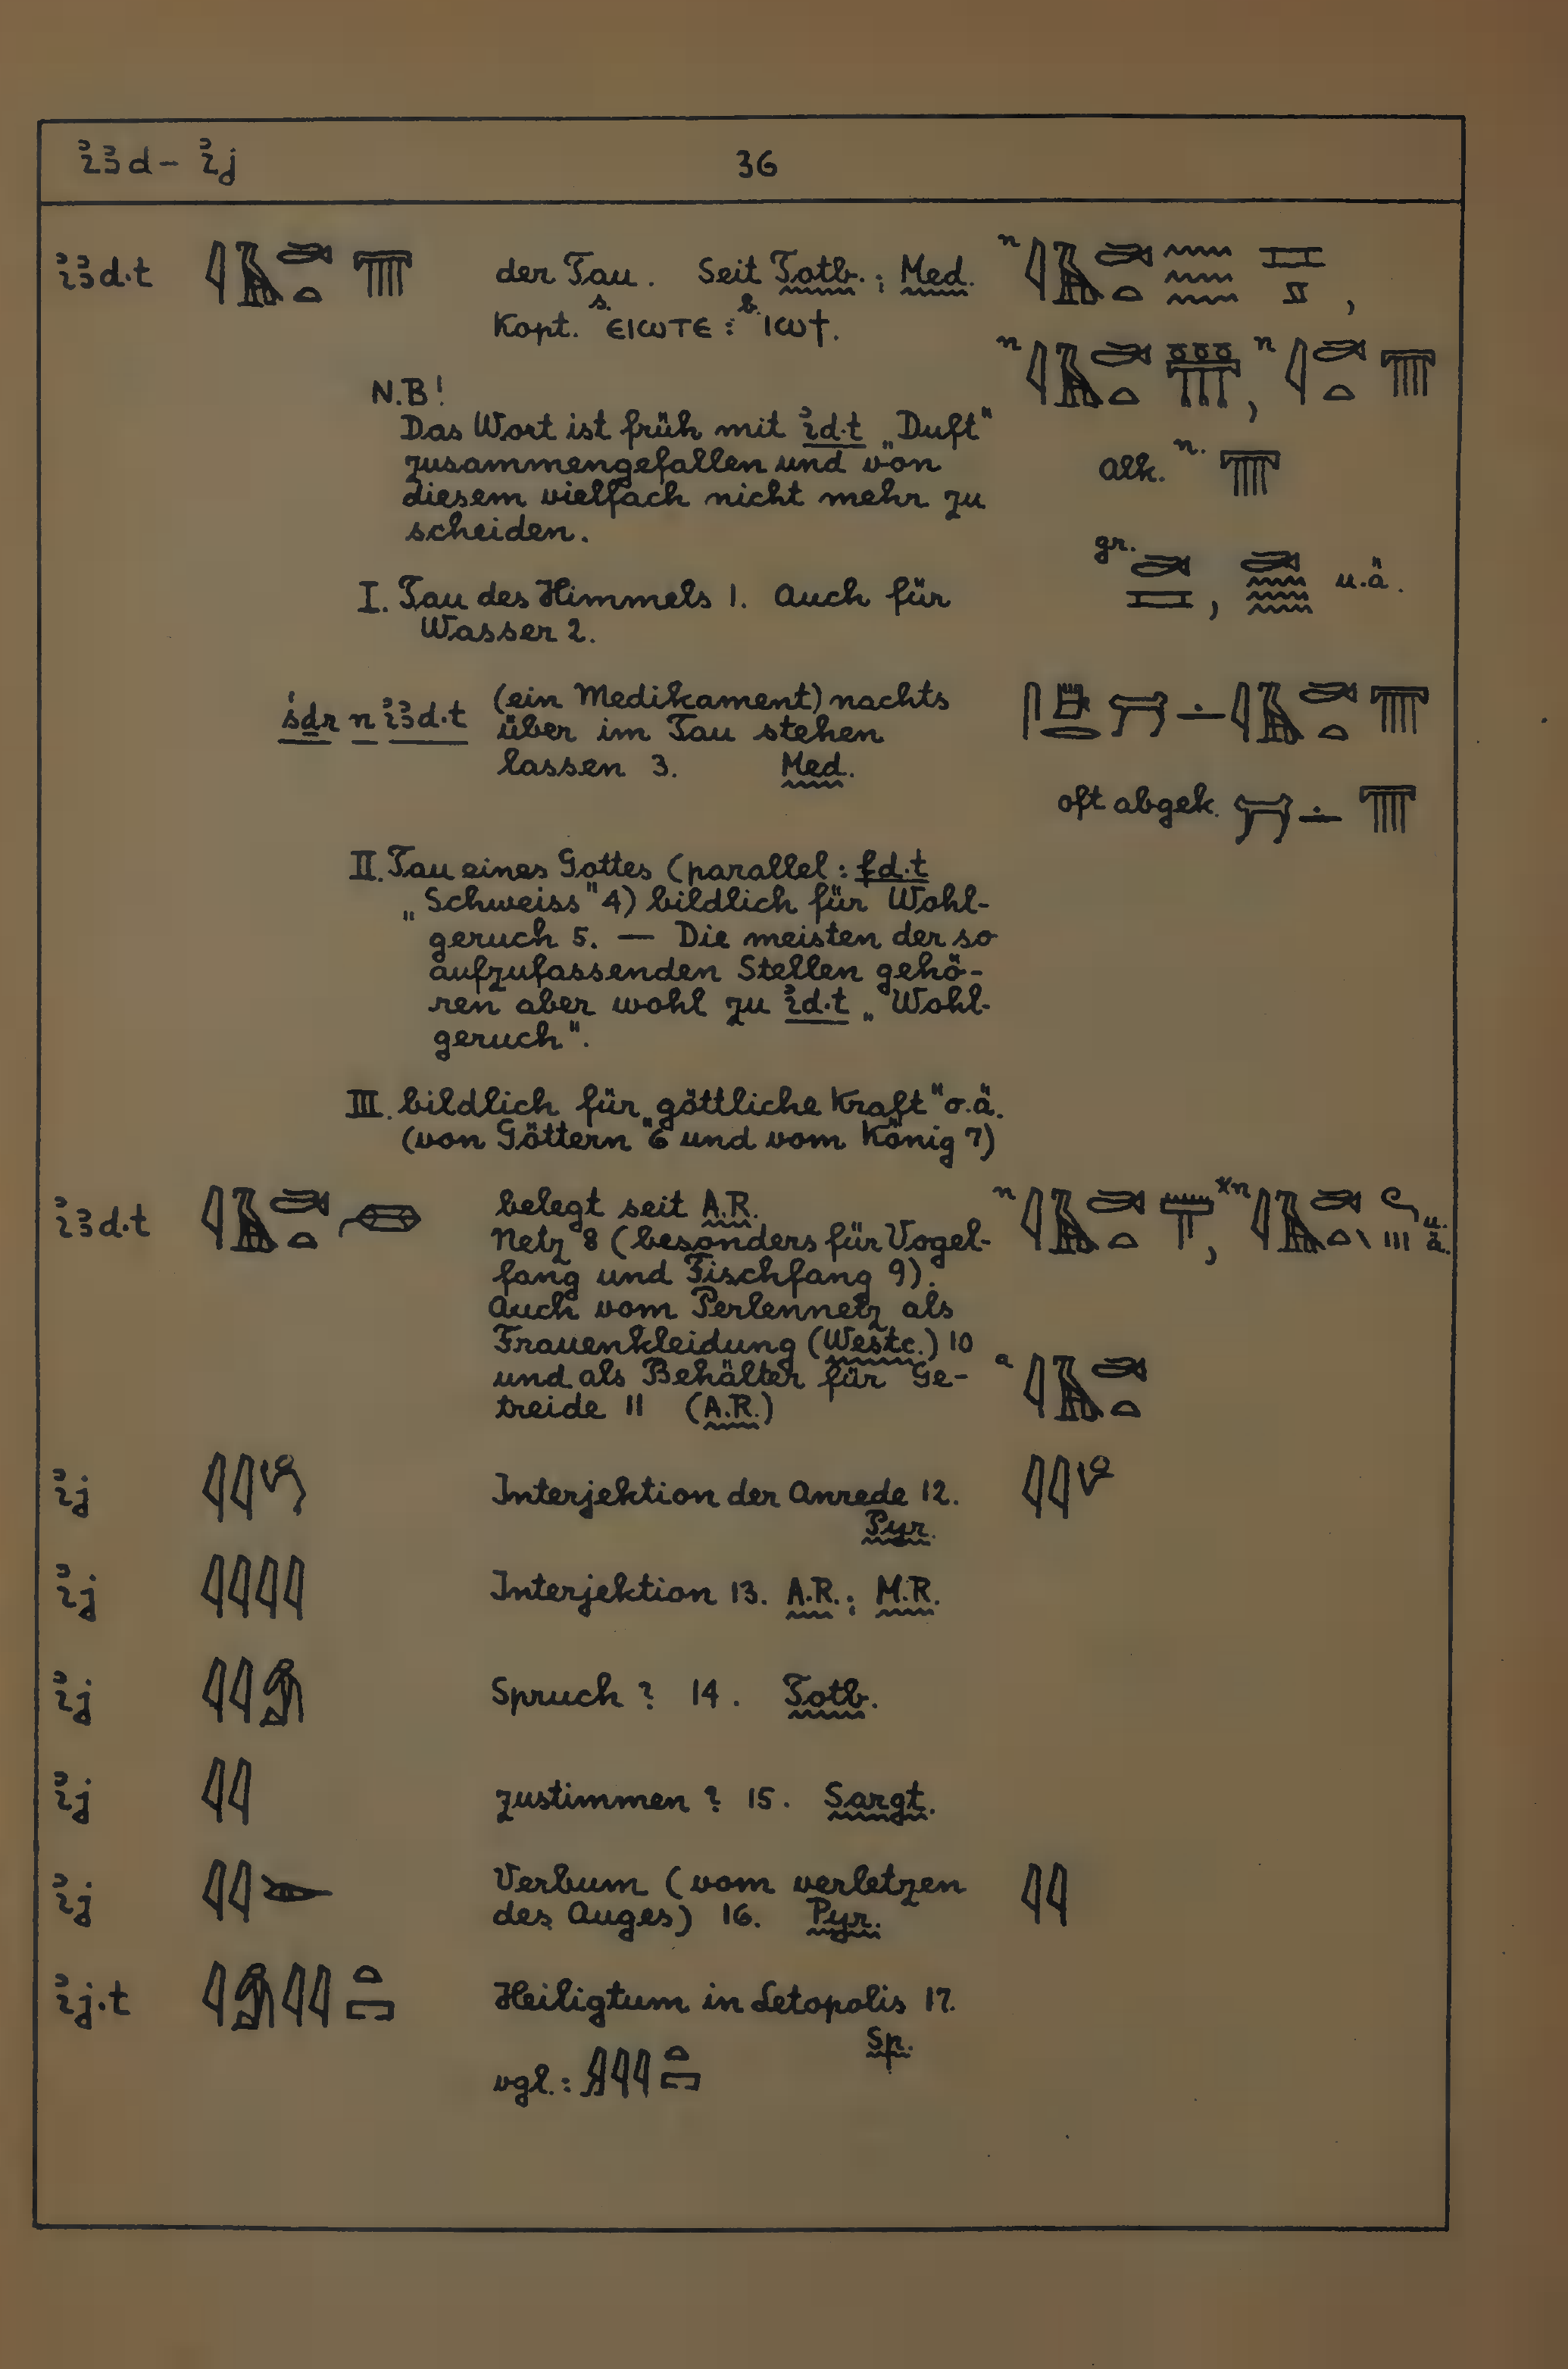 ꞽꜣd – ꞽj 36
ꞽꜣd.t der Tau. Seit Totb.; Med.
Kopt. s. ⲉⲓⲱⲧⲉ : b. ⲓⲱϯ.
N.B!
Das Wort ist früh mit ꞽd.t „Duft“
zusammengefallen und von
diesem vielfach nicht mehr zu
scheiden.
alk. n.
gr. u.ä.
I. Tau des Himmels 1. Auch für
Wasser 2.
śḏr n ꞽꜣd.t (ein Medikament) nachts
über im Tau stehen
lassen 3. Med.
oft abgek.
II. Tau eines Gottes (parallel: fd.t
„Schweiss“ 4) bildlich für Wohl-
geruch 5. — Die meisten der so
aufzufassenden Stellen gehö-
ren aber wohl zu ꞽd.t „Wohl-
geruch“.
III. bildlich für „göttliche Kraft“ o.ä.
(von Göttern 6 und vom König 7)
ꞽꜣd.t belegt seit A.R.
Netz 8 (besonders für Vogel- u.ä.
fang und Fischfang 9).
Auch vom Perlennetz als
Frauenkleidung (Westc.) 10
und als Behälter für Ge-
treide 11 (A.R.)
ꞽj Interjektion der Anrede 12.
Pyr.
ꞽj Interjektion 13. A.R.; M.R.
ꞽj Spruch? 14. Totb.
ꞽj zustimmen? 15. Sargt.
ꞽj Verbum (vom verletzen
des Auges) 16. Pyr.
ꞽj.t Heiligtum in Letopolis 17.
Sp.
vgl.: